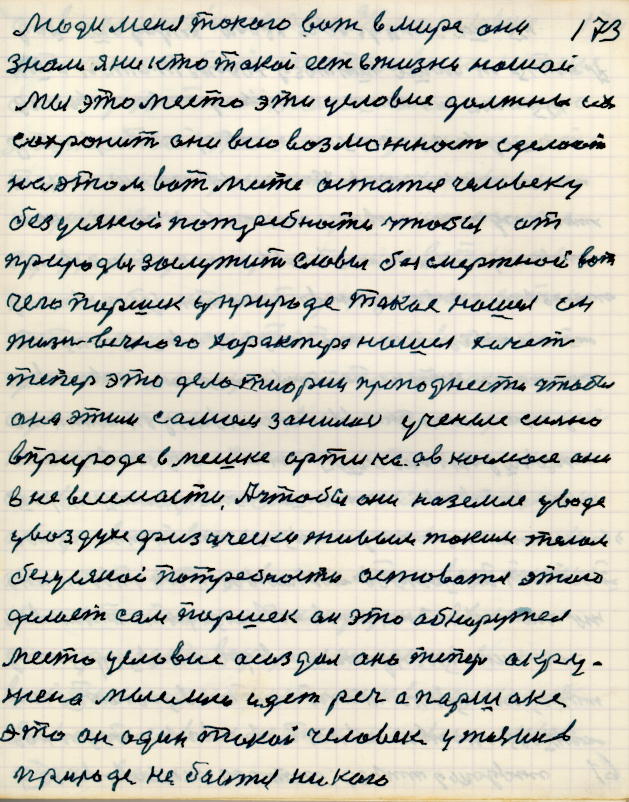 Люди меня такого вот в мире они 173
знали яникто такой есть в жизни нашой
Мы это место эти условие должны их
сохронит они всю возможност сделоют
на этом вот месте остатся человеку
без усякой потребности чтобы от
природы заслужит славы бесмертной вот
чего паршек уприроде такое нашел он
жизн вечного характера нашел хочет
тепер это дело теории преподнести чтобы
они этим самым занилис ученые силно
вприроде в мешке артика ов космосе они
в невесимасти. Ачтобы они наземле уводе
увоздухе физически живым таким телом
безусякой потребности оставатся этого
делоет сам паршек он это обнаружел
место условие асоздал оно тепер окру-
жена мыслию идет реч опаршеке
это он один такой человек ужизнив
природе не баится никого